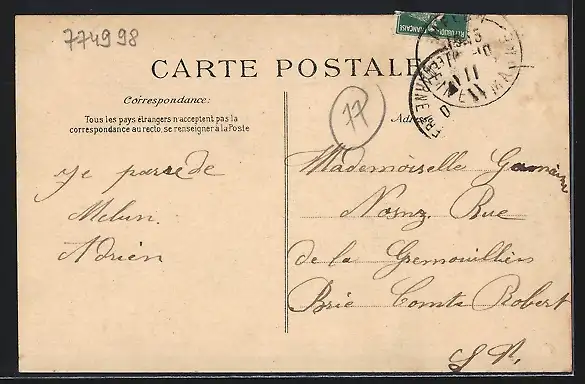 774998
RÉPUBLIQUE FRANÇAISE
CARTE POSTALE
Correspondance:
Tous les pays étrangers n'acceptent pas la
correspondance au recto, se renseigner à la Poste
77
Adr
je passe de
Melun
Adrien
Mademoiselle
Rue
de la Grenouillère
Brie Comte Robert
S M.